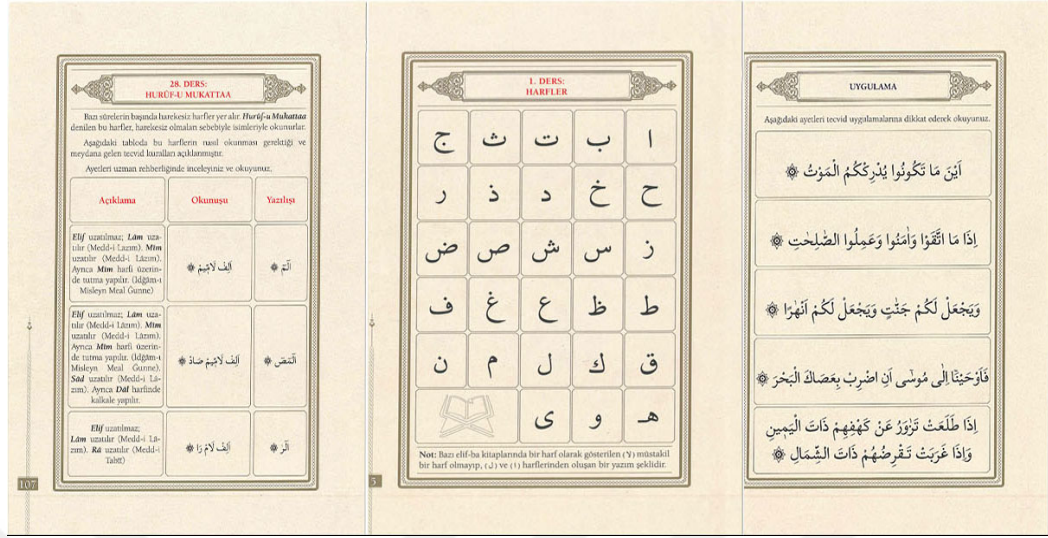 28. DERS:
HURÛF-U MUKATTAA
Bazı sûrelerin başında harekesiz harfler yer alır. Hurûf-u Mukattaa
denilen bu harfler, harekesiz olmaları sebebiyle isimleriyle okunurlar.
Aşağıdaki tabloda bu harflerin nasıl okunması gerektiği ve
meydana gelen tecvid kuralları açıklanmıştır.
Ayetleri uzman rehberliğinde inceleyiniz ve okuyunuz.
Açıklama Okunuşu Yazılışı
Elif uzatılmaz; Lâm uza-
tılır (Medd-i Lazım). Mîm
uzatılır (Medd-i Lâzım).
Ayrıca Mîm harfi üzerin-
de tutma yapılır. (İdğâm-ı
Misleyn Meal Ğunne)
اَلِفْ لَامِّيمْ
الٓمٓ
Elif uzatılmaz; Lâm uza-
tılır (Medd-i Lâzım). Mîm
uzatılır (Medd-i Lâzım).
Ayrıca Mîm harfi üzerin-
de tutma yapılır. (İdğâm-ı
Misleyn Meal Ğunne).
Sâd uzatılır (Medd-i Lâ-
zım). Ayrıca Dâl harfinde
kalkale yapılır.
اَلِفْ لَامِّيمْ صَادْ
الٓمٓصٓ
Elif uzatılmaz;
Lâm uzatılır (Medd-i Lâ-
zım). Râ uzatılır (Medd-i
Tabiî)
اَلِفْ لَامْ رَا
الٓرٰ
107
1. DERS:
HARFLER
ا ب ت ث ج
ح خ د ذ ر
ز س ش ص ض
ط ظ ع غ ف
ق ك ل م ن
هـ و ى
Not: Bazı elif-ba kitaplarında bir harf olarak gösterilen (لا) müstakil
bir harf olmayıp, (ل) ve (ا) harflerinden oluşan bir yazım şeklidir.
5
UYGULAMA
Aşağıdaki ayetleri tecvid uygulamalarına dikkat ederek okuyunuz.
اَيْنَ مَا تَكُونُوا يُدْرِكْكُمُ الْمَوْتُ
اِذَا مَا اتَّقَوْا وَاٰمَنُوا وَعَمِلُوا الصَّالِحَاتِ
وَيَجْعَلْ لَكُمْ جَنَّاتٍ وَيَجْعَلْ لَكُمْ اَنْهٰرًا
فَاَوْحَيْنَٓا اِلٰى مُوسٰٓى اَنِ اضْرِبْ بِعَصَاكَ الْبَحْرَ
اِذَا طَلَعَتْ تَزٰوَرُ عَنْ كَهْفِهِمْ ذَاتَ الْيَمِينِ
وَاِذَا غَرَبَتْ تَقْرِضُهُمْ ذَاتَ الشِّمَالِ